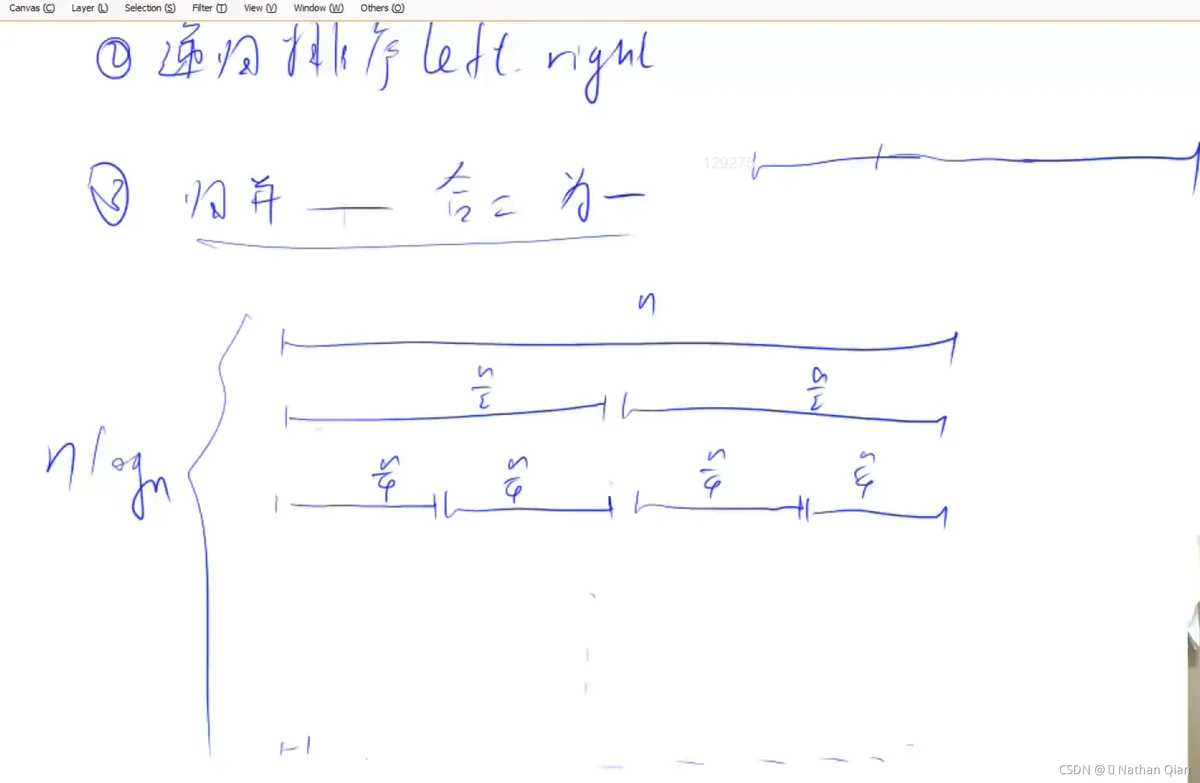 Canvas (C) Layer (L) Selection (S) Filter (T) View (V) Window (W) Others (O)
② 递归排序 left. right
129278
③ 归并 — 合二为一
n
n/2 n/2
n/4 n/4 n/4 n/4
nlogn
CSDN @ Nathan Qian